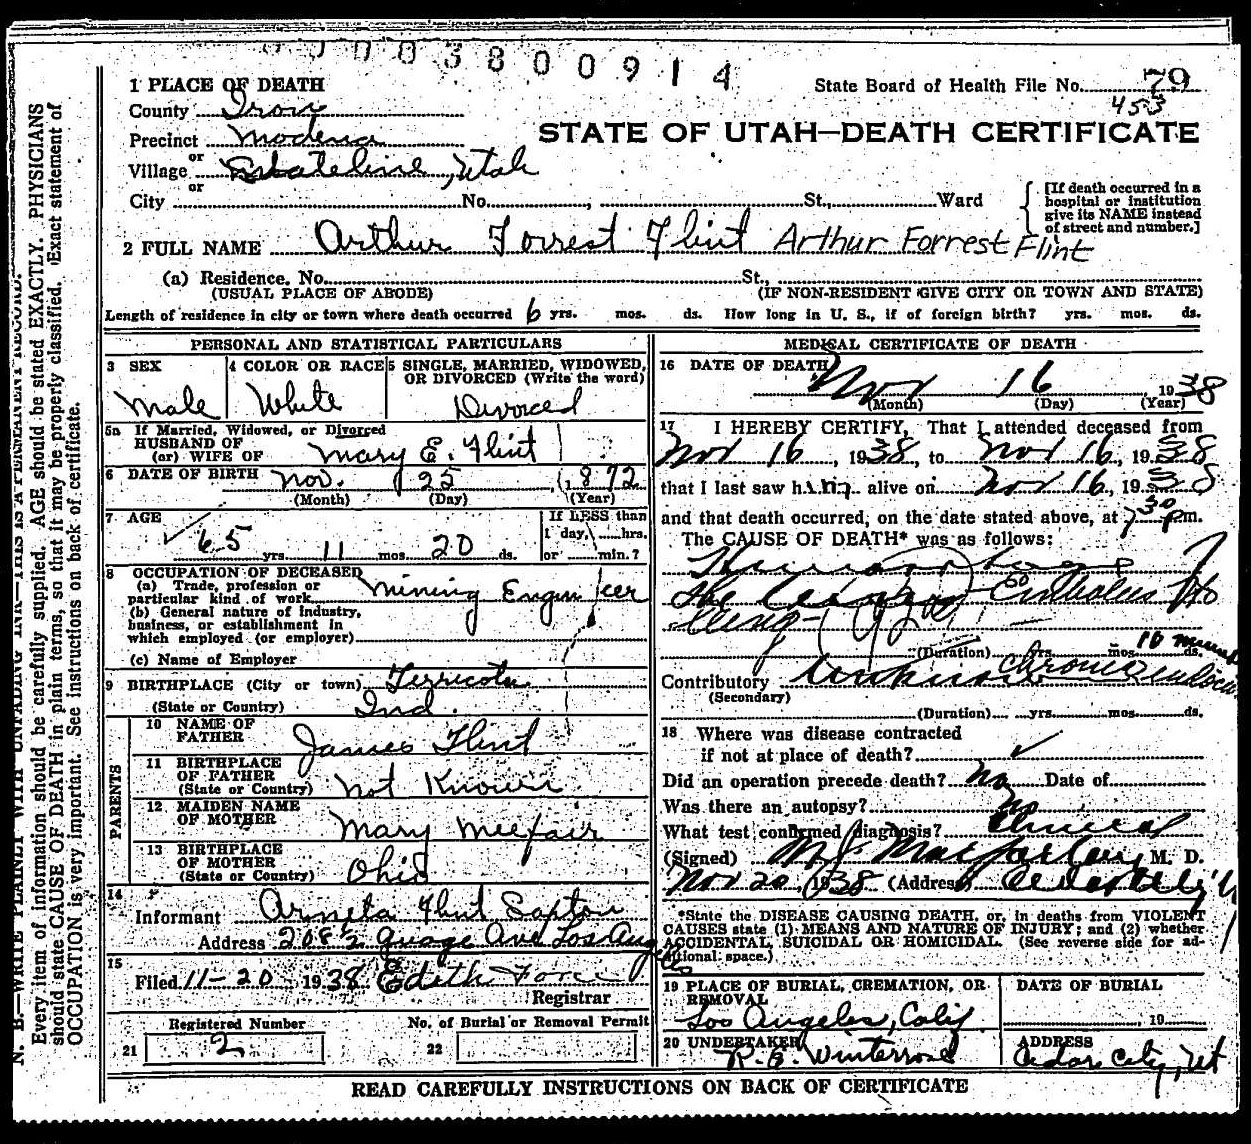 0003800914
1 PLACE OF DEATH
State Board of Health File No. 79
County Iron
453
Precinct Modena
STATE OF UTAH—DEATH CERTIFICATE
or
Village Stateline, Utah
or
City No. , St., Ward
[If death occurred in a
hospital or institution
give its NAME instead
of street and number.]
2 FULL NAME Arthur Forrest Flint Arthur Forrest Flint
(a) Residence. No. St.,
(USUAL PLACE OF ABODE) (IF NON-RESIDENT GIVE CITY OR TOWN AND STATE)
Length of residence in city or town where death occurred 6 yrs. mos. ds. How long in U. S., if of foreign birth? yrs. mos. ds.
PERSONAL AND STATISTICAL PARTICULARS
3 SEX
Male
4 COLOR OR RACE
White
5 SINGLE, MARRIED, WIDOWED,
OR DIVORCED (Write the word)
Divorced
5a If Married, Widowed, or Divorced
HUSBAND OF
(or) WIFE OF Mary E. Flint
6 DATE OF BIRTH Nov. 25, 1872
(Month) (Day) (Year)
7 AGE
65 yrs. 11 mos. 20 ds.
If LESS than
1 day, hrs.
or min.?
8 OCCUPATION OF DECEASED
(a) Trade, profession or
particular kind of work Mining Engineer
(b) General nature of industry,
business, or establishment in
which employed (or employer)
(c) Name of Employer
9 BIRTHPLACE (City or town)
(State or Country) Ind.
PARENTS
10 NAME OF
FATHER James Flint
11 BIRTHPLACE
OF FATHER
(State or Country) Not Known
12 MAIDEN NAME
OF MOTHER Mary
13 BIRTHPLACE
OF MOTHER
(State or Country) Ohio
14
Informant Flint
Address 208½ Ave Los Angeles
15
Filed 11-20 1938 Edith
Registrar
Registered Number
21 2
No. of Burial or Removal Permit
22
MEDICAL CERTIFICATE OF DEATH
16 DATE OF DEATH
Nov 16 1938
(Month) (Day) (Year)
17 I HEREBY CERTIFY, That I attended deceased from
Nov 16, 1938, to Nov 16, 1938
that I last saw him alive on Nov 16, 1938
and that death occurred, on the date stated above, at 7 30 p m.
The CAUSE OF DEATH* was as follows:
(Duration) yrs. mos. ds.
Contributory chronic
(Secondary)
(Duration) yrs. mos. ds.
18 Where was disease contracted
if not at place of death?
Did an operation precede death? No Date of
Was there an autopsy? No
What test confirmed diagnosis? Clinical
(Signed) M J Macfarlane, M. D.
Nov 20, 1938 (Address) Cedar City, U
*State the DISEASE CAUSING DEATH, or, in deaths from VIOLENT
CAUSES state (1) MEANS AND NATURE OF INJURY; and (2) whether
ACCIDENTAL, SUICIDAL OR HOMICIDAL. (See reverse side for ad-
ditional space.)
19 PLACE OF BURIAL, CREMATION, OR
REMOVAL
Los Angeles, Calif.
DATE OF BURIAL
, 19
20 UNDERTAKER
Winterrose
ADDRESS
Cedar City, Ut
READ CAREFULLY INSTRUCTIONS ON BACK OF CERTIFICATE
N. B.—WRITE PLAINLY WITH UNFADING INK—THIS IS A PERMANENT RECORD.
Every item of information should be carefully supplied. AGE should be stated EXACTLY. PHYSICIANS
should state CAUSE OF DEATH in plain terms, so that it may be properly classified. Exact statement of
OCCUPATION is very important. See instructions on back of certificate.